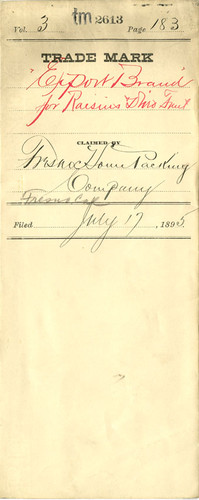 tm 2613
Vol. 3 Page 183
TRADE MARK
"Export Brand"
for Raisins & Dried Fruit
CLAIMED BY
Fresno Home Packing
Company
Fresno, Cal
Filed July 17, 1895